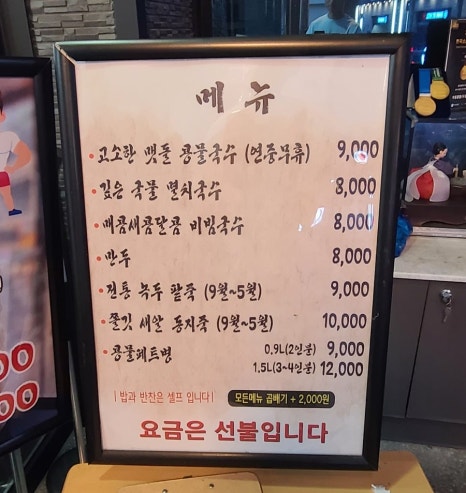 메뉴
•고소한 맷돌 콩물국수 (연중무휴) 9,000
•깊은 국물 멸치국수 8,000
•매콤새콤달콤 비빔국수 8,000
•만두 8,000
•전통 녹두 팥죽 (9월~5월) 9,000
•쫄깃 새알 동지죽 (9월~5월) 10,000
•콩물페트병 0.9L(2인분) 9,000
1.5L(3~4인분) 12,000
| 밥과 반찬은 셀프 입니다 |
모든메뉴 곱배기 + 2,000원
요금은 선불입니다